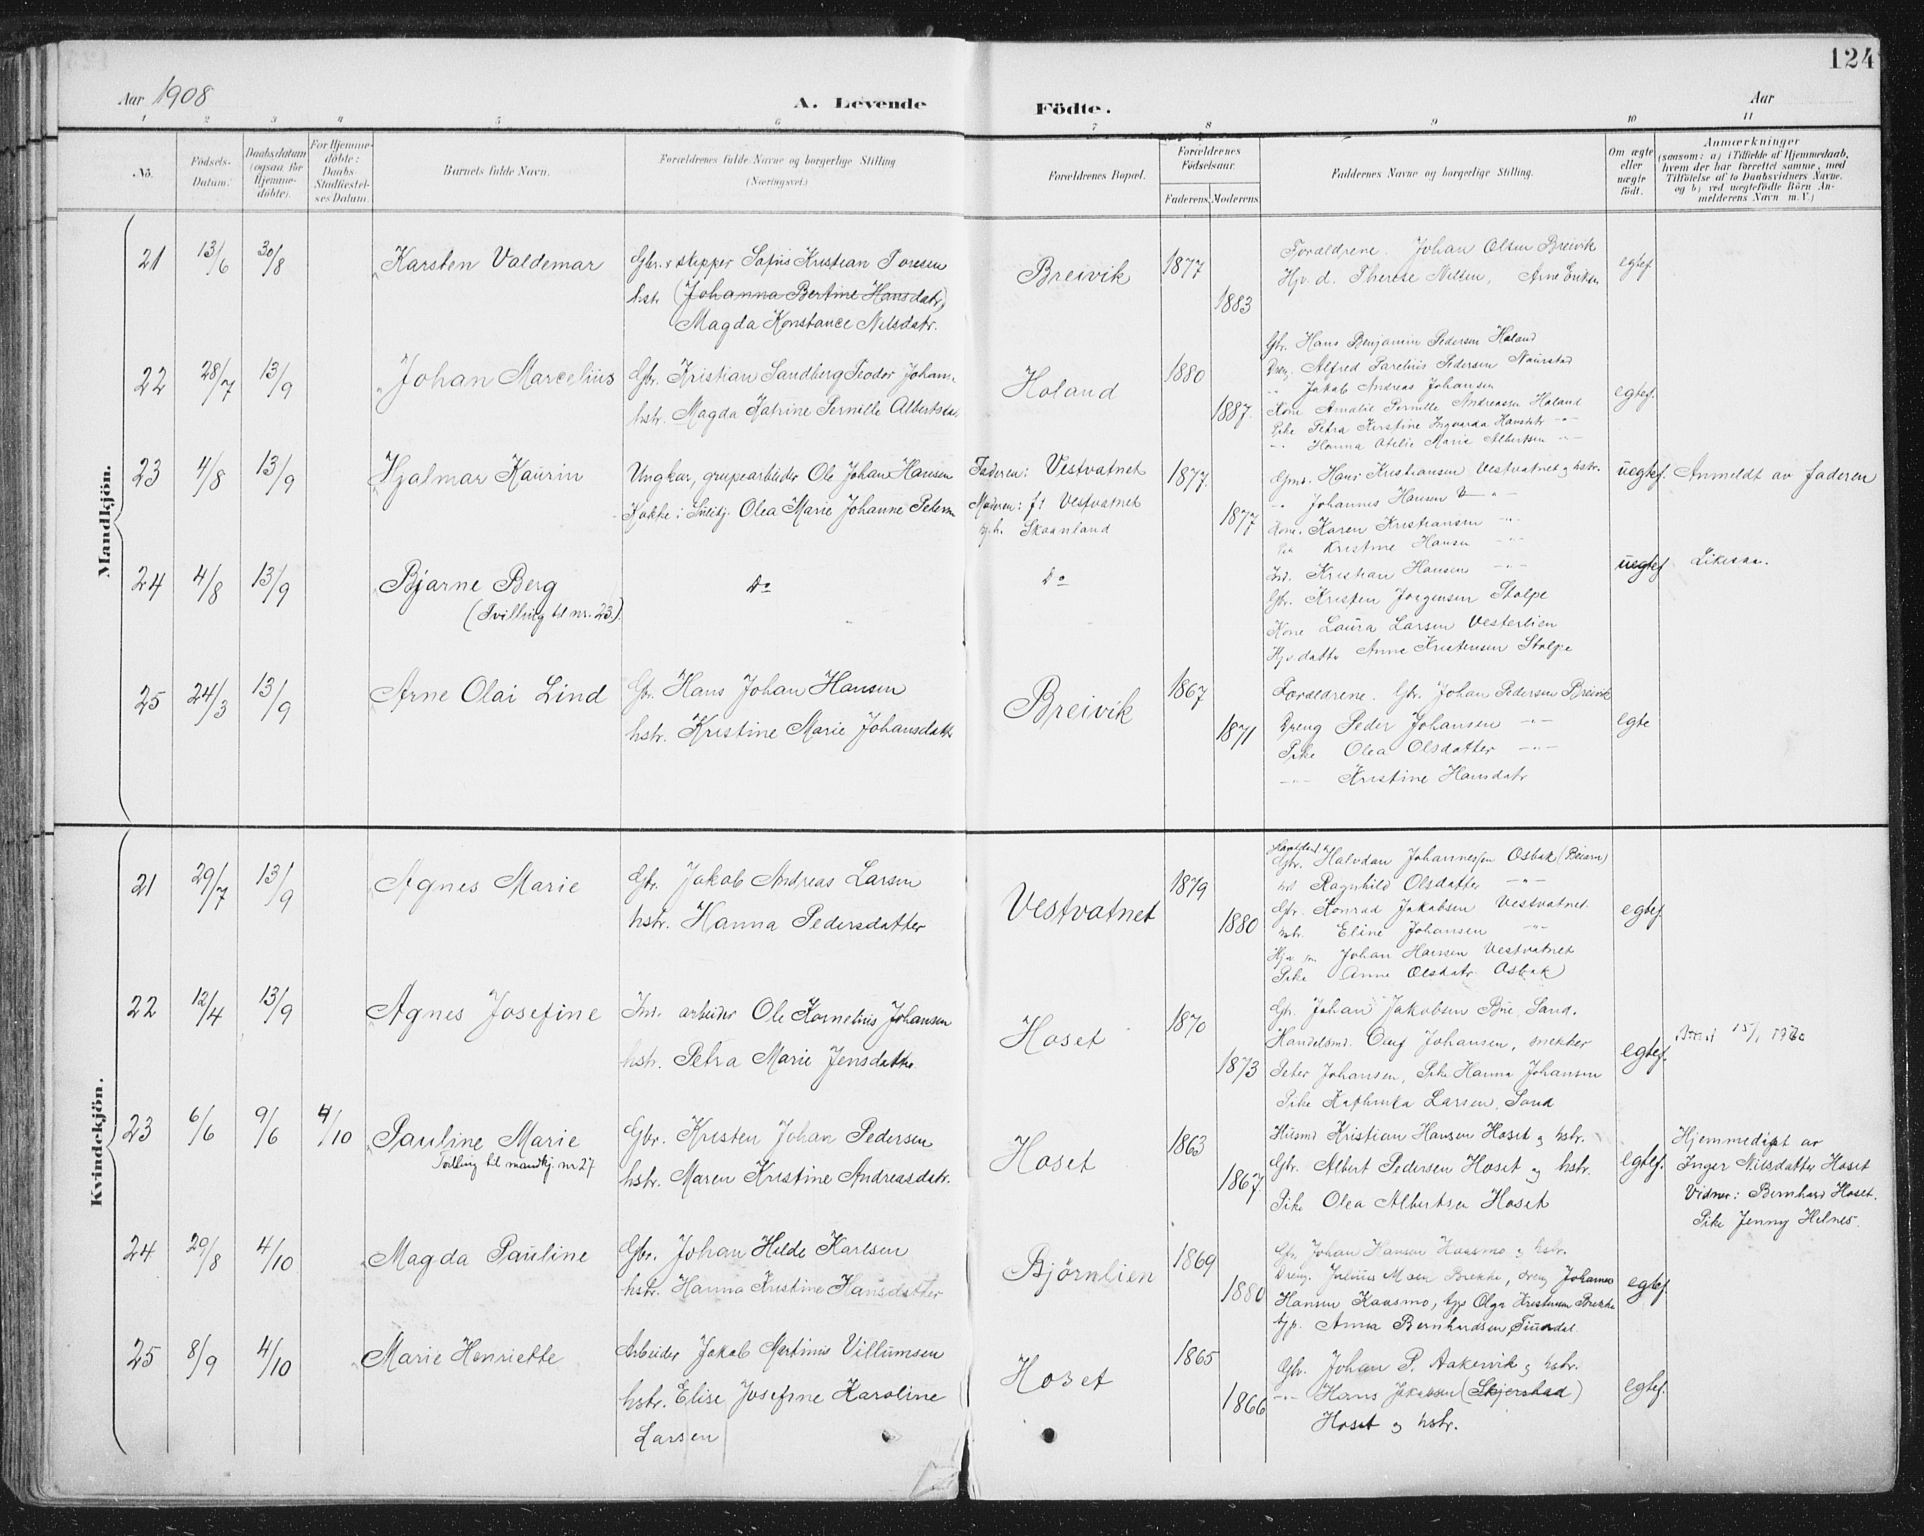 124
Aar 1908
A. Levende Födte.
Aar
1 2 3 4 5 6 7 8 9 10 11
No.
Födsels-Datum.
Daabsdatum (ogsaa for Hjemmedöbte).
For Hjemmedöbte: Daabs Stadfæstelses Datum.
Barnets fulde Navn.
Forældrenes fulde Navne og borgerlige Stilling (Næringsvei.)
Forældrenes Bopæl.
Forældrenes Födselsaar.
Faderens. Moderens.
Faddernes Navne og borgerlige Stilling.
Om ægte eller uægte födt.
Anmærkninger
(saasom: a) i Tilfælde af Hjemmedaab, hvem der har forrettet samme, med Tilföielse af to Daabsvidners Navne, og b) ved uægtefödte Börn Anmelderens Navn m. V.)
Mandkjön.
21 13/6 30/8 Karsten Valdemar
Gbr. & skipper Sofus Kristian Toresen
hstr. (Johanna Bertine Hansdatr)
Magda Konstance Nilsdatr.
Breivik 1877 1883
Forældrene. Johan Olsen Breivik
Hjv. d. Therese Nilsen, Arne Eriksen
egtef
22 28/7 13/9 Johan Marcelius
Gbr. Kristian Sandberg Teodor Johans.
hstr. Magda Katrine Pernille Albertsdat.
Holand 1880 1887.
Gbr. Hans Benjamin Pedersen Holand
Dreng. Alfred Parelius Pedersen Naurstad
" Jakob Andreas Johansen
Kone Amalie Pernille Andreassen Holand
Pike Petra Kirstine Ingvarda Hansdtr -"-
-"- Hanna Otelie Marie Albertsen -"-
egtef.
23 4/8 13/9 Hjalmar Kaurin
Ungkar, grupearbeider Ole Johan Hansen
Kokke i Sulitj. Olea Marie Johanne Petersen
Faderen: Vestvatnet
Moderen: ft Vestvatnet
Skaanland
1877. 1877
Gmd. Hans Kristiansen Vestvatnet & hstr.
" Johannes Hansen -"-
Kone. Karen Kristiansen -"-
Kristine Hansen -"-
uegtef. Anmeldt av faderen
24 4/8 13/9 Bjarne Berg
(Tvilling til nr. 23).
Do Do
Ind. Kristian Hansen -"-
Gbr. Kristen Jørgensen Stolpe
Kone Laura Larsen Vesterlien
Hjv datter Anne Kristensen Stolpe
uegtef Likesaa.
25 24/3 13/9 Arne Olai Lind
Gbr. Hans Johan Hansen
hstr. Kristine Marie Johansdatter
Breivik 1867 1871
Forældrene. Gbr. Johan Pedersen Breivik
Dreng Peder Johansen -"-
Pike Olea Olsdatter -"-
-"- Kristine Hansdatr
egte
Kvindekjön.
21 29/7 13/9 Agnes Marie
Gbr. Jakob Andreas Larsen
hstr. Hanna Pedersdatter
Vestvatnet 1879 1880
Gbr. Halvdan Johannessen Osbak (Beiarn)
hst Ragnhild Olsdatter -"-
Gbr. Konrad Jakobsen Vestvatnet
hstr. Eline Johansen -"-
Hjv. søn Johan Hansen Vestvatnet
Pike Anne Olsdatr. Osbak
egtef.
22 12/4 13/9 Agnes Josefine
Ind. arbeider Ole Kornelius Johansen
hstr. Petra Marie Jensdatter
Hoset 1870 1873
Gbr. Johan Jakobsen Bue, Sand.
Handelsmd. Oluf Johansen, snekker
Peter Johansen, Pike Hanna Johansen
Pike Kathinka Larsen, Sand
egtef.
23 6/6 9/6 4/10 Pauline Marie
Tvilling til mandkj. nr 27
Gbr. Kristen Johan Pedersen
hstr. Maren Kristine Andreasdatr.
Hoset 1863 1867
Husmd Kristian Hansen Hoset og hstr.
Gbr. Albert Pedersen Hoset og hstr.
Pike Olea Albertsen Hoset
egtef.
Hjemmedøpt av
Inger Nilsdatter Hoset
Vidner: Bernhard Hoset.
Pike Jenny Helnes.
24 20/8 4/10 Magda Pauline
Gbr. Johan Hilde Karlsen
hstr. Hanna Kristine Hansdatter
Bjørnlien 1869 1880
Gbr. Johan Hansen Kaasmo og hstr.
Dreng. Julius Moen Brekke, dreng Johannes
Hansen Kaasmo, tjp Olga Kristensen Brekke
tjp. Anna Bernhardsen
egtef
25 8/9 4/10 Marie Henriette
Arbeider Jakob Martinus Villumsen
hstr. Elise Josefine Karoline
Larsen
Hoset 1865 1866
Gbr. Johan P. Aakervik og hstr.
-"- Hans Jakobsen (Skjerstad)
Hoset og hstr.
egtef.